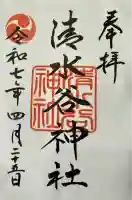 奉拝
清水谷神社
令和七年四月二十五日